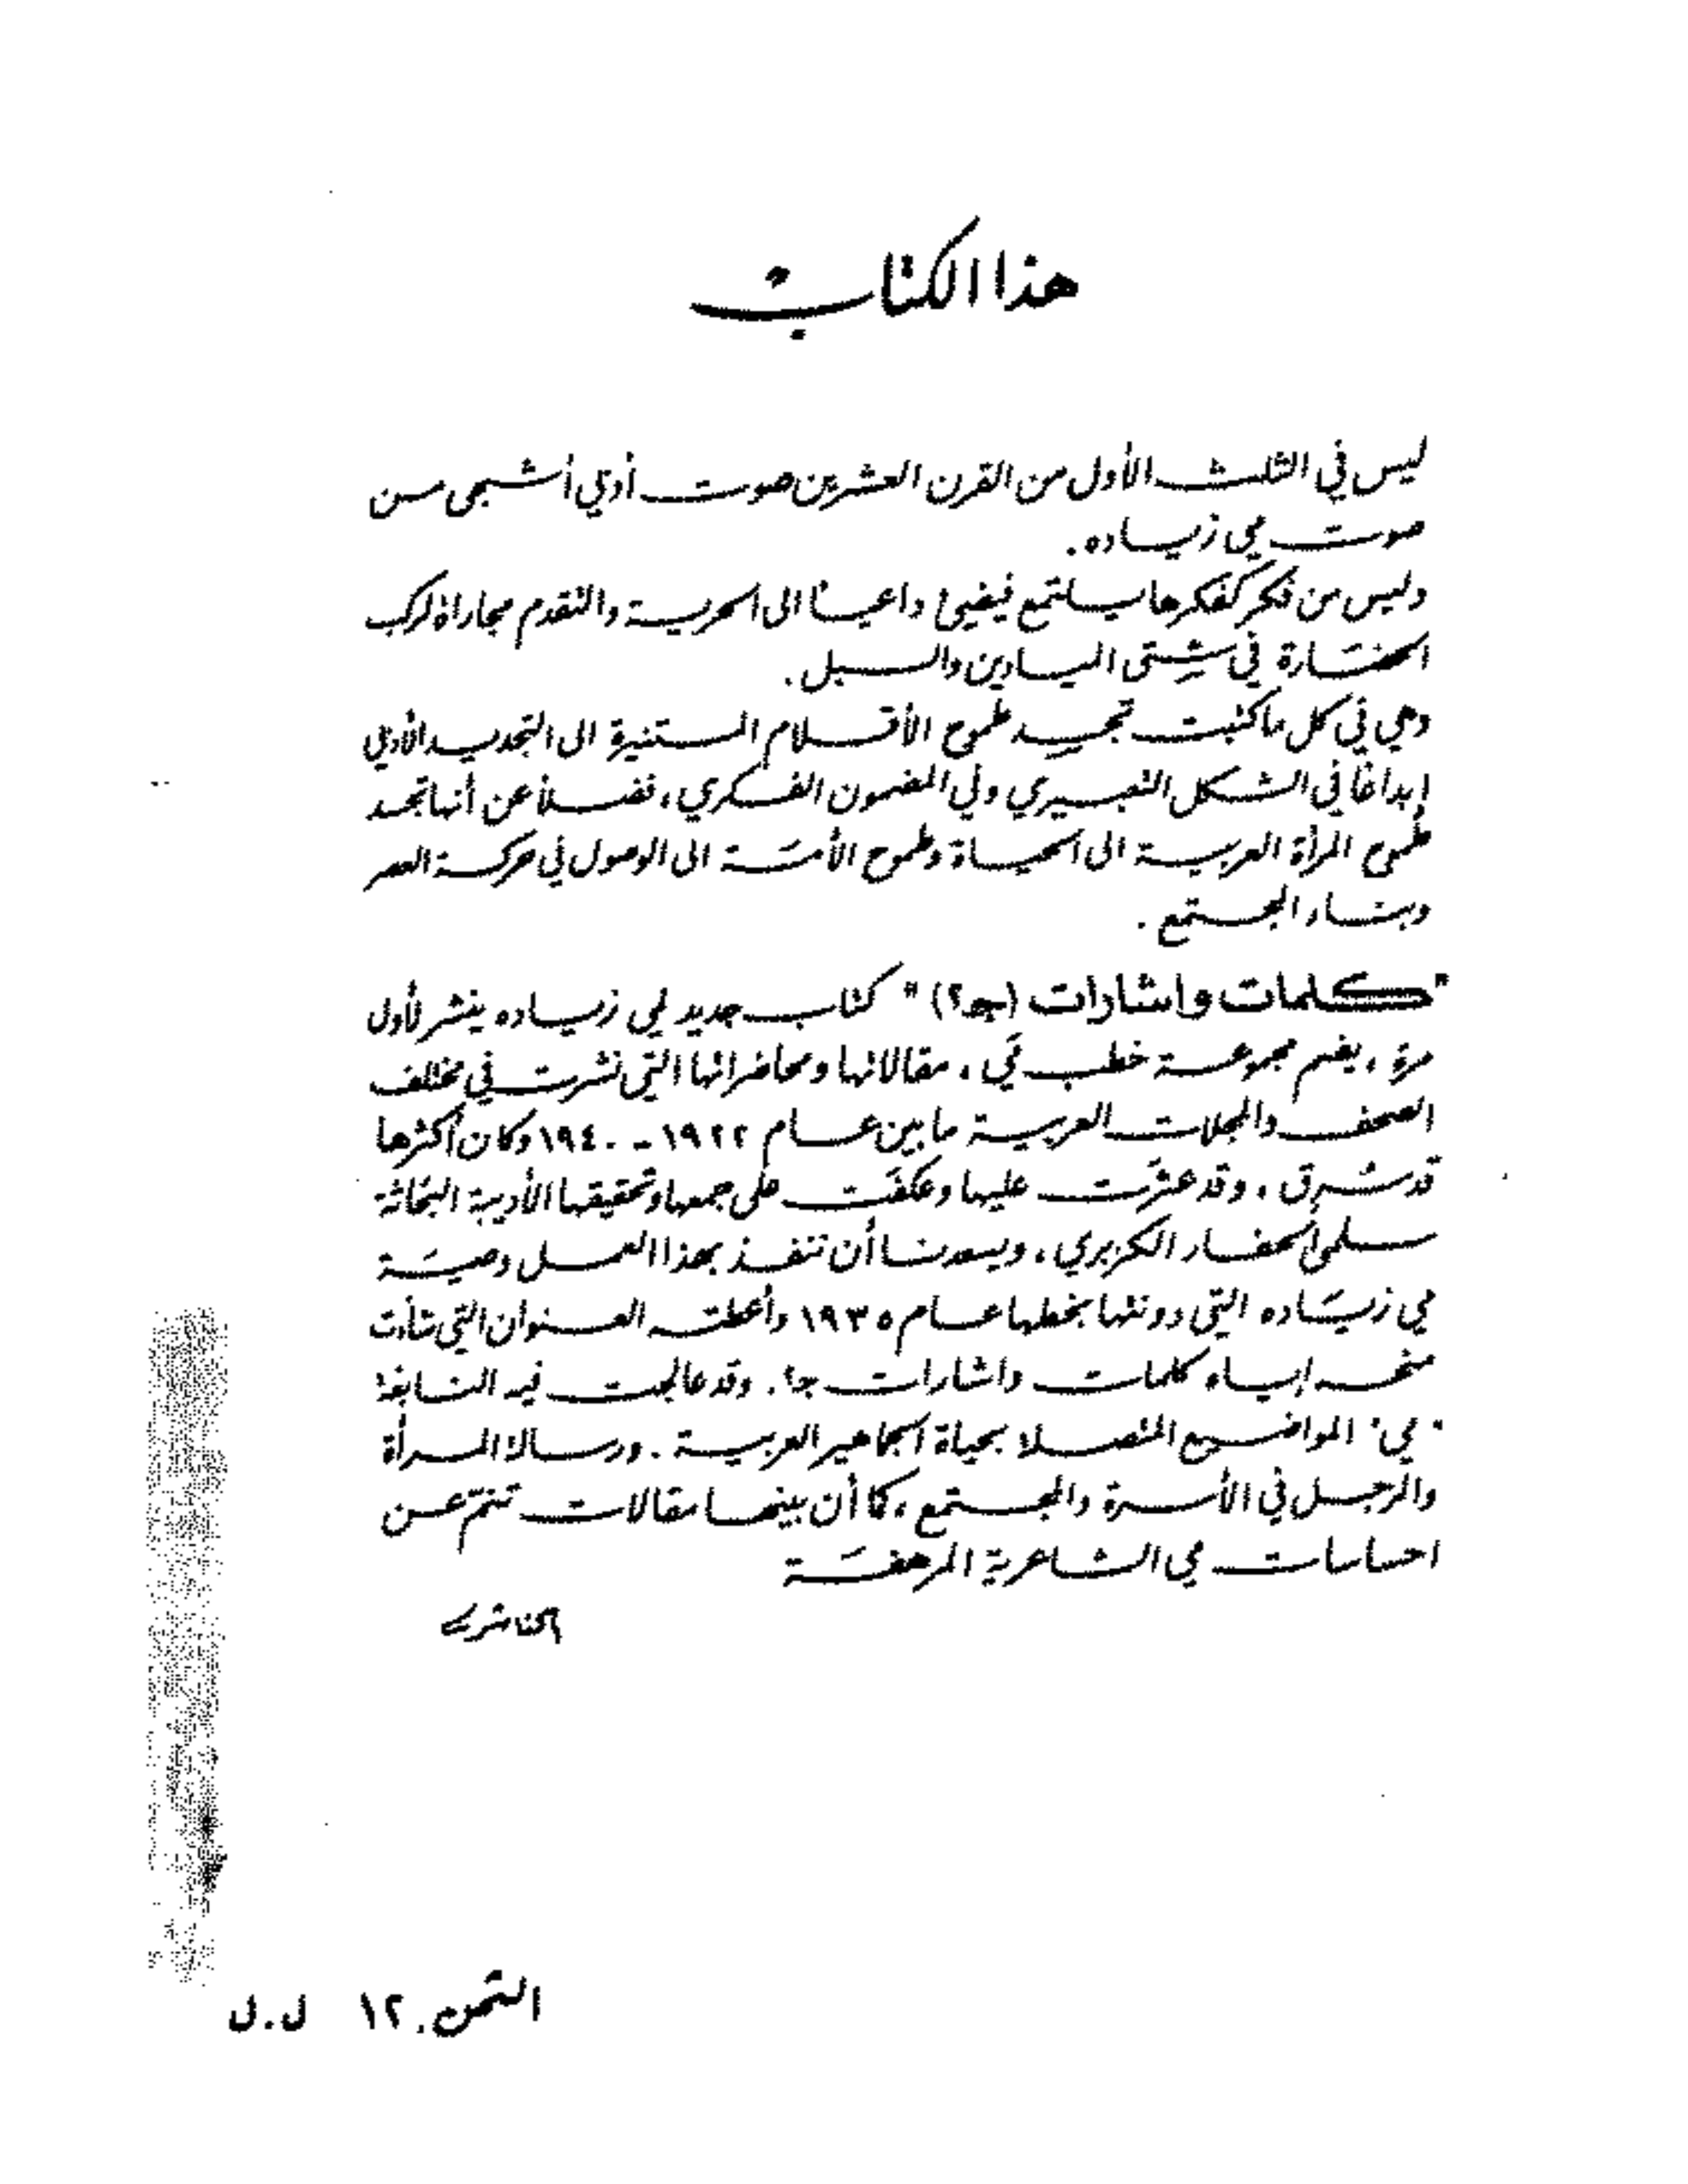 هذا الكتاب
ليس في الثلث الأول من القرن العشرين صوت أدبي أشجى من
صوت مي زياده.
وليس من فكر كفكرها يلتمع فيضيء داعياً الى الحرية والتقدم مجاراة لركب
الحضارة في شتى الميادين والسبل.
وهي في كل ما كتبت تجسد طموح الأقلام المستنيرة الى التجديد الأدبي
إبداعاً في الشكل التعبيري وفي المضمون الفكري، فضلاً عن أنها تجسد
طموح المرأة العربية الى الحياة وطموح الأمة الى الوصول في حركة العصر
وبناء المجتمع.
"كلمات واشارات (ج٢)" كتاب جديد لمي زياده ينشر لأول
مرة، يضم مجموعة خطب مي، مقالاتها ومحاضراتها التي نشرت في مختلف
الصحف والمجلات العربية ما بين عام ١٩٢٢ - ١٩٤٠ وكان أكثرها
قد سُرق، وقد عثرت عليها وعكفت على جمعها وتحقيقها الأديبة البحّاثة
سلمى الحفار الكزبري، ويسعدنا أن ننفذ بهذا العمل وصية
مي زياده التي دونتها بخطها عام ١٩٣٥ وأعطته العنوان التي شاءت
منحه إياه كلمات واشارات ج٢. وقد عالجت فيه النابغة
"مي" المواضيع المتصلة بحياة الجماهير العربية. ورسالة المرأة
والرجل في الأسرة والمجتمع، كما أن بينها مقالات تنمّ عن
احساسات مي الشاعرية المرهفة
الناشر
الثمن. ١٢ ل.ل